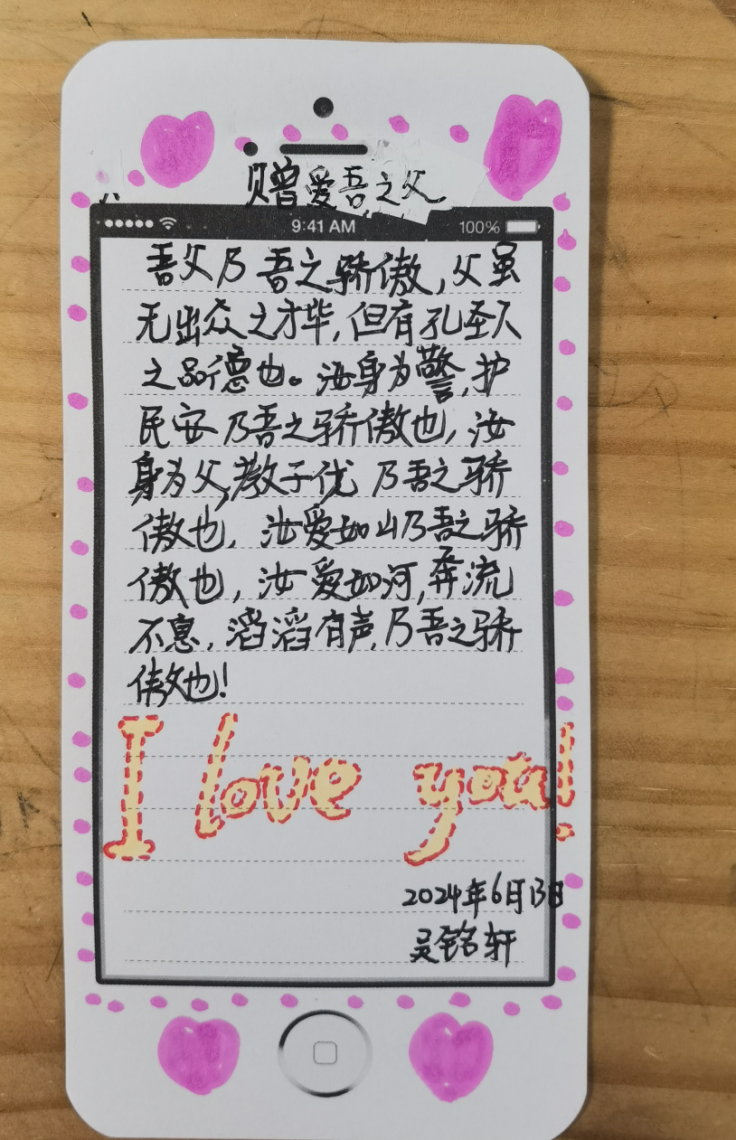 赠爱吾之父
9:41 AM 100%
吾父乃吾之骄傲,父虽
无出众之才华,但有孔圣人
之品德也。汝身为警,护
民安乃吾之骄傲也,汝
身为父,教子优 乃吾之骄
傲也,汝爱如山乃吾之骄
傲也,汝爱如河,奔流
不息,滔滔有声,乃吾之骄
傲也!
I love you!
2024年6月13日
吴铭轩